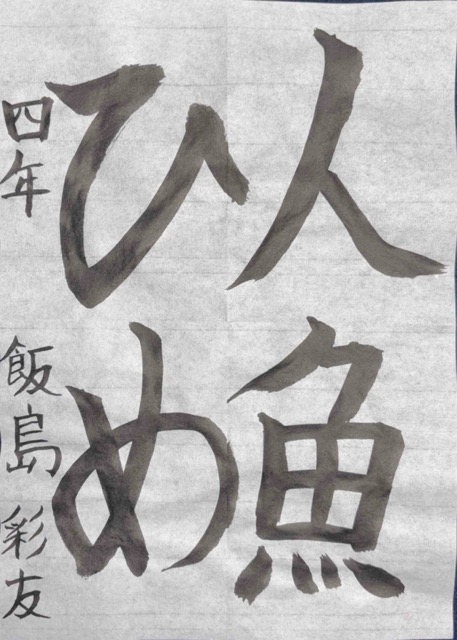 人魚
ひめ
四年 飯島 彩友